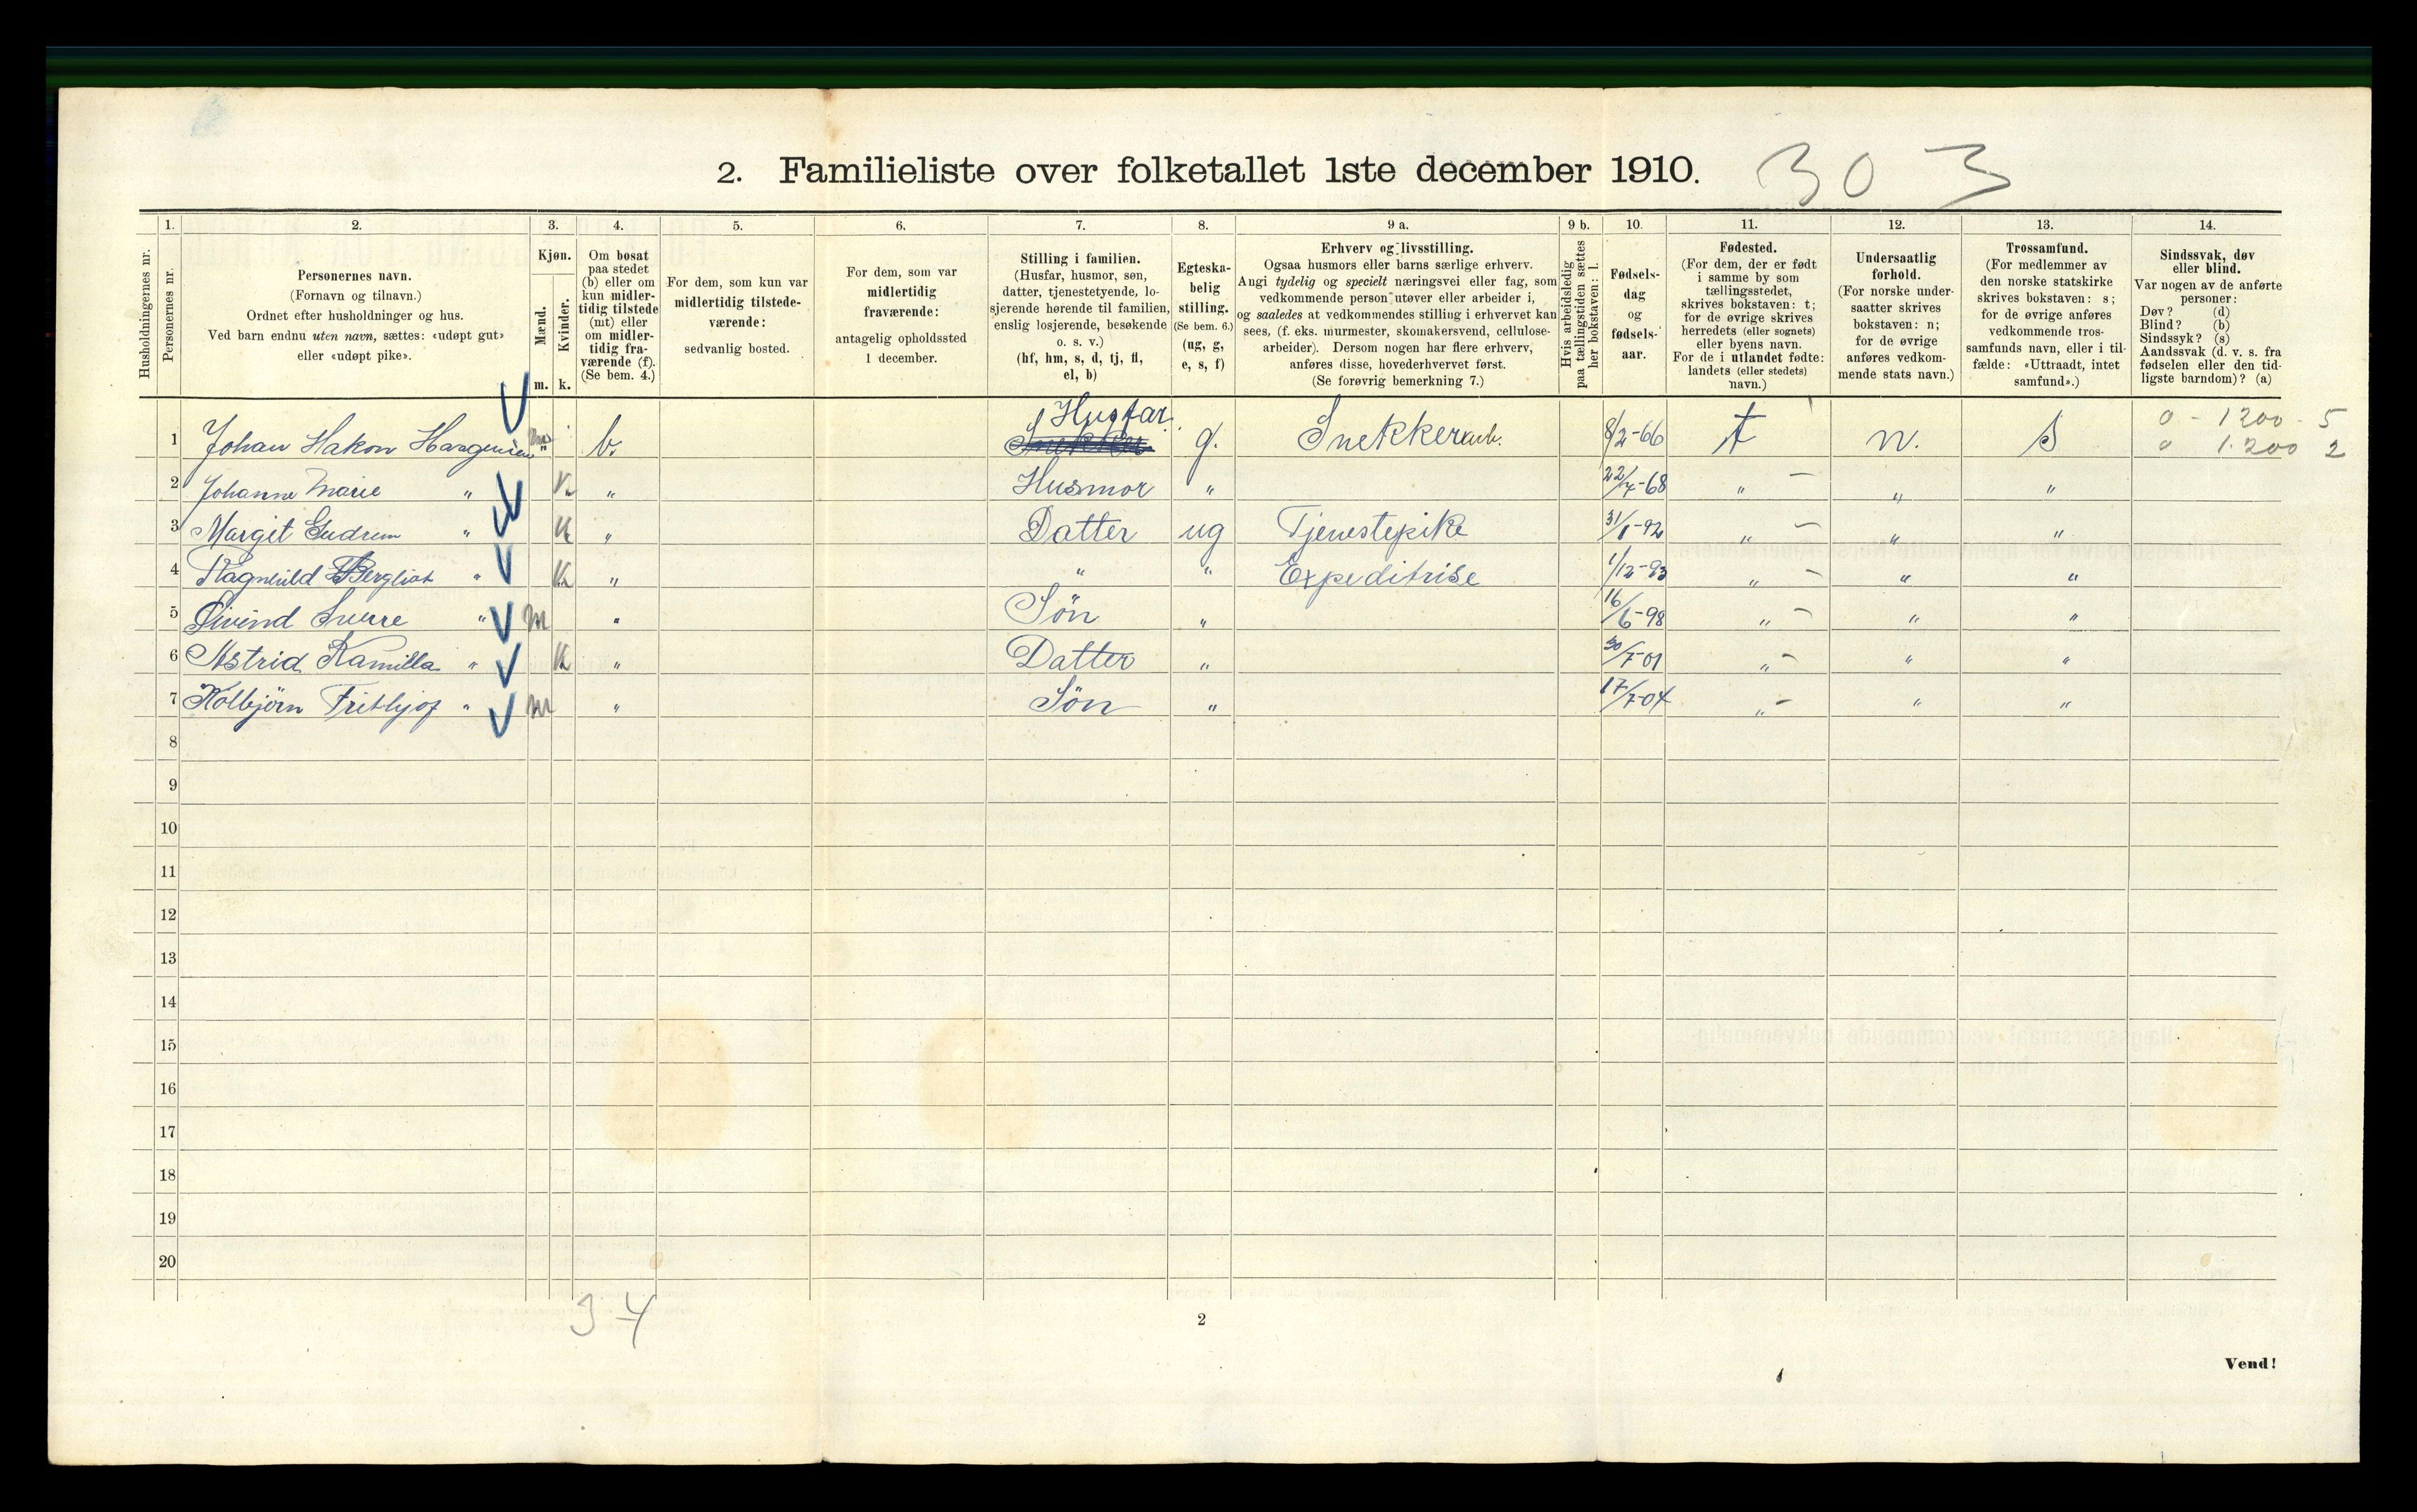 2. Familieliste over folketallet 1ste december 1910. 303
Husholdningernes nr.
1.
Personernes nr.
2.
Personernes navn.
(Fornavn og tilnavn.)
Ordnet efter husholdninger og hus.
Ved barn endnu uten navn, sættes: «udøpt gut»
eller «udøpt pike».
3.
Kjøn.
Mænd.
Kvinder.
m. k.
4.
Om bosat
paa stedet
(b) eller om
kun midler-
tidig tilstede
(mt) eller
om midler-
tidig fra-
værende (f).
(Se bem. 4.)
5.
For dem, som kun var
midlertidig tilstede-
værende:
sedvanlig bosted.
6.
For dem, som var
midlertidig
fraværende:
antagelig opholdssted
1 december.
7.
Stilling i familien.
(Husfar, husmor, søn,
datter, tjenestetyende, lo-
sjerende hørende til familien,
enslig losjerende, besøkende
o. s. v.)
(hf, hm, s, d, tj, fl,
el, b)
8.
Egteska-
belig
stilling.
(Se bem. 6.)
(ug, g,
e, s, f)
9 a.
Erhverv og livsstilling.
Ogsaa husmors eller barns særlige erhverv.
Angi tydelig og specielt næringsvei eller fag, som
vedkommende person utøver eller arbeider i,
og saaledes at vedkommendes stilling i erhvervet kan
sees, (f. eks. murmester, skomakersvend, cellulose-
arbeider). Dersom nogen har flere erhverv,
anføres disse, hovederhvervet først.
(Se forøvrig bemerkning 7.)
9 b.
Hvis arbeidsledig
paa tællingstiden sættes
her bokstaven: l.
10.
Fødsels-
dag
og
fødsels-
aar.
11.
Fødested.
(For dem, der er født
i samme by som
tællingsstedet,
skrives bokstaven: t;
for de øvrige skrives
herredets (eller sognets)
eller byens navn.
For de i utlandet fødte:
landets (eller stedets)
navn.)
12.
Undersaatlig
forhold.
(For norske under-
saatter skrives
bokstaven: n;
for de øvrige
anføres vedkom-
mende stats navn.)
13.
Trossamfund.
(For medlemmer av
den norske statskirke
skrives bokstaven: s;
for de øvrige anføres
vedkommende tros-
samfunds navn, eller i til-
fælde: «Uttraadt, intet
samfund».)
14.
Sindssvak, døv
eller blind.
Var nogen av de anførte
personer:
Døv? (d)
Blind? (b)
Sindssyk? (s)
Aandssvak (d. v. s. fra
fødselen eller den tid-
ligste barndom)? (a)
1 Johan Hakon m b. Husfar g. Snekkerarb. 8/2-66 t n. s 0 - 1200 - 5
0 1.200 2
2 Johanne Marie " k " Husmor " 22/7-68 " - " "
3 Margit Gudrun " k " Datter ug Tjenestepike 31/1-92 " - " "
4 Ragnhild Bergliot " k " " " Expeditrise 1/12-93 " - " "
5 Øivind Sverre " m " Søn " 16/6-98 " - " "
6 Astrid Kamilla " k " Datter " 30/7-01 " - " "
7 Kolbjørn Frithjof " m " Søn " 17/7-04 " - " "
8
9
10
11
12
13
14
15
16
17
18
19
20
34
2
Vend!